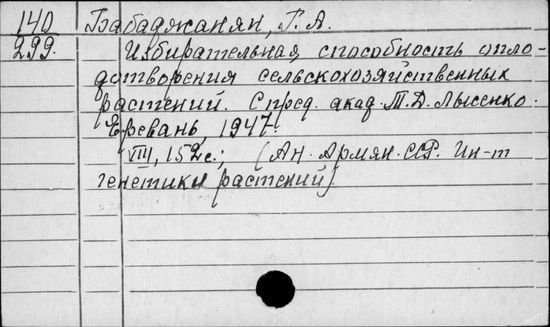 140 Бабаджанян, Г. А.
299. Избирательная способность опло-
дотворения сельскохозяйственных
растений. С пред. акад. Т. Д. Лысенко.
Ереван, 1947.
VIII, 152 с.; (Ан. Армян. ССР. Ин-т
генетики растений)